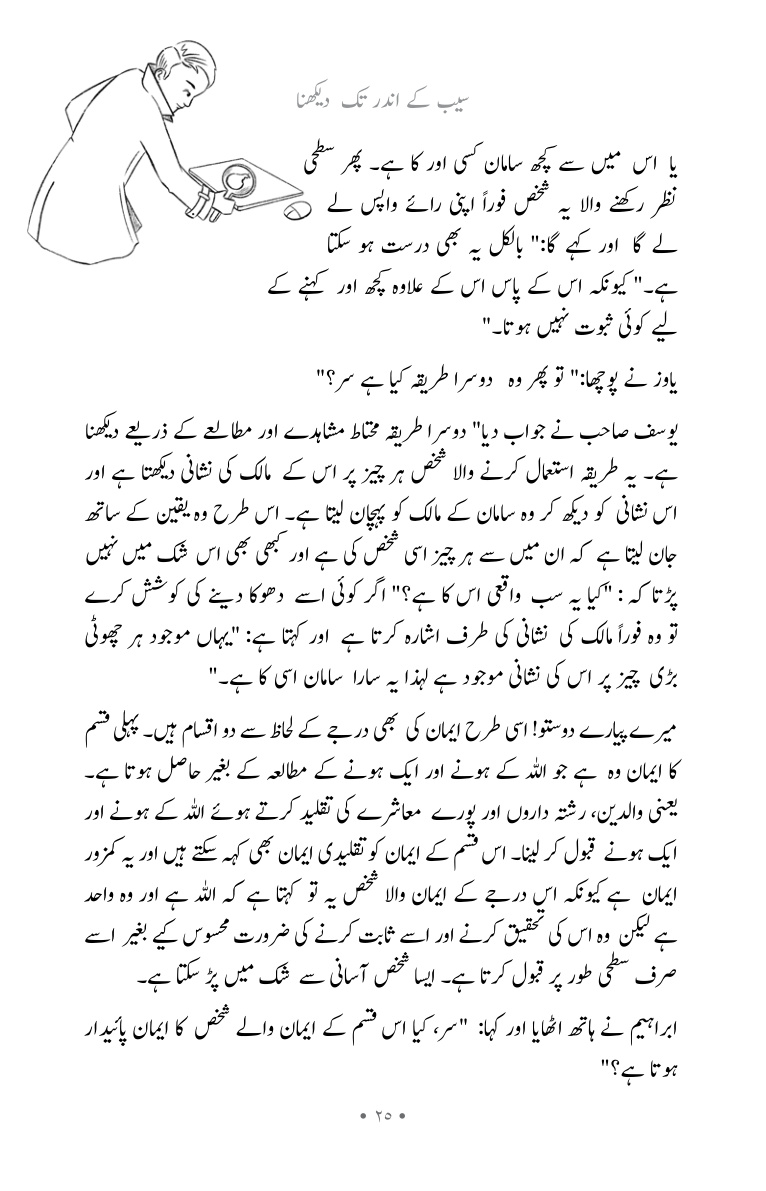 سیب کے اندر تک دیکھنا
یا اس میں سے کچھ سامان کسی اور کا ہے۔ پھر سطحی
نظر رکھنے والا یہ شخص فوراً اپنی رائے واپس لے
لے گا اور کہے گا:" بالکل یہ بھی درست ہو سکتا
ہے۔" کیونکہ اس کے پاس اس کے علاوہ کچھ اور کہنے کے
لیے کوئی ثبوت نہیں ہوتا۔"
یاوز نے پوچھا:" تو پھر وہ دوسرا طریقہ کیا ہے سر؟"
یوسف صاحب نے جواب دیا" دوسرا طریقہ محتاط مشاہدے اور مطالعے کے ذریعے دیکھنا
ہے۔ یہ طریقہ استعمال کرنے والا شخص ہر چیز پر اس کے مالک کی نشانی دیکھتا ہے اور
اس نشانی کو دیکھ کر وہ سامان کے مالک کو پہچان لیتا ہے۔ اس طرح وہ یقین کے ساتھ
جان لیتا ہے کہ ان میں سے ہر چیز اسی شخص کی ہے اور کبھی بھی اس شک میں نہیں
پڑتا کہ : "کیا یہ سب واقعی اس کا ہے؟" اگر کوئی اسے دھوکا دینے کی کوشش کرے
تو وہ فوراً مالک کی نشانی کی طرف اشارہ کرتا ہے اور کہتا ہے: "یہاں موجود ہر چھوٹی
بڑی چیز پر اس کی نشانی موجود ہے لہذا یہ سارا سامان اسی کا ہے۔"
میرے پیارے دوستو! اسی طرح ایمان کی بھی درجے کے لحاظ سے دو اقسام ہیں۔ پہلی قسم
کا ایمان وہ ہے جو اللہ کے ہونے اور ایک ہونے کے مطالعہ کے بغیر حاصل ہوتا ہے۔
یعنی والدین، رشتہ داروں اور پورے معاشرے کی تقلید کرتے ہوئے اللہ کے ہونے اور
ایک ہونے قبول کر لینا۔ اس قسم کے ایمان کو تقلیدی ایمان بھی کہہ سکتے ہیں اور یہ کمزور
ایمان ہے کیونکہ اس درجے کے ایمان والا شخص یہ تو کہتا ہے کہ اللہ ہے اور وہ واحد
ہے لیکن وہ اس کی تحقیق کرنے اور اسے ثابت کرنے کی ضرورت محسوس کیے بغیر اسے
صرف سطحی طور پر قبول کرتا ہے۔ ایسا شخص آسانی سے شک میں پڑ سکتا ہے۔
ابراہیم نے ہاتھ اٹھایا اور کہا: "سر، کیا اس قسم کے ایمان والے شخص کا ایمان پائیدار
ہوتا ہے؟"
• ٢٥ •